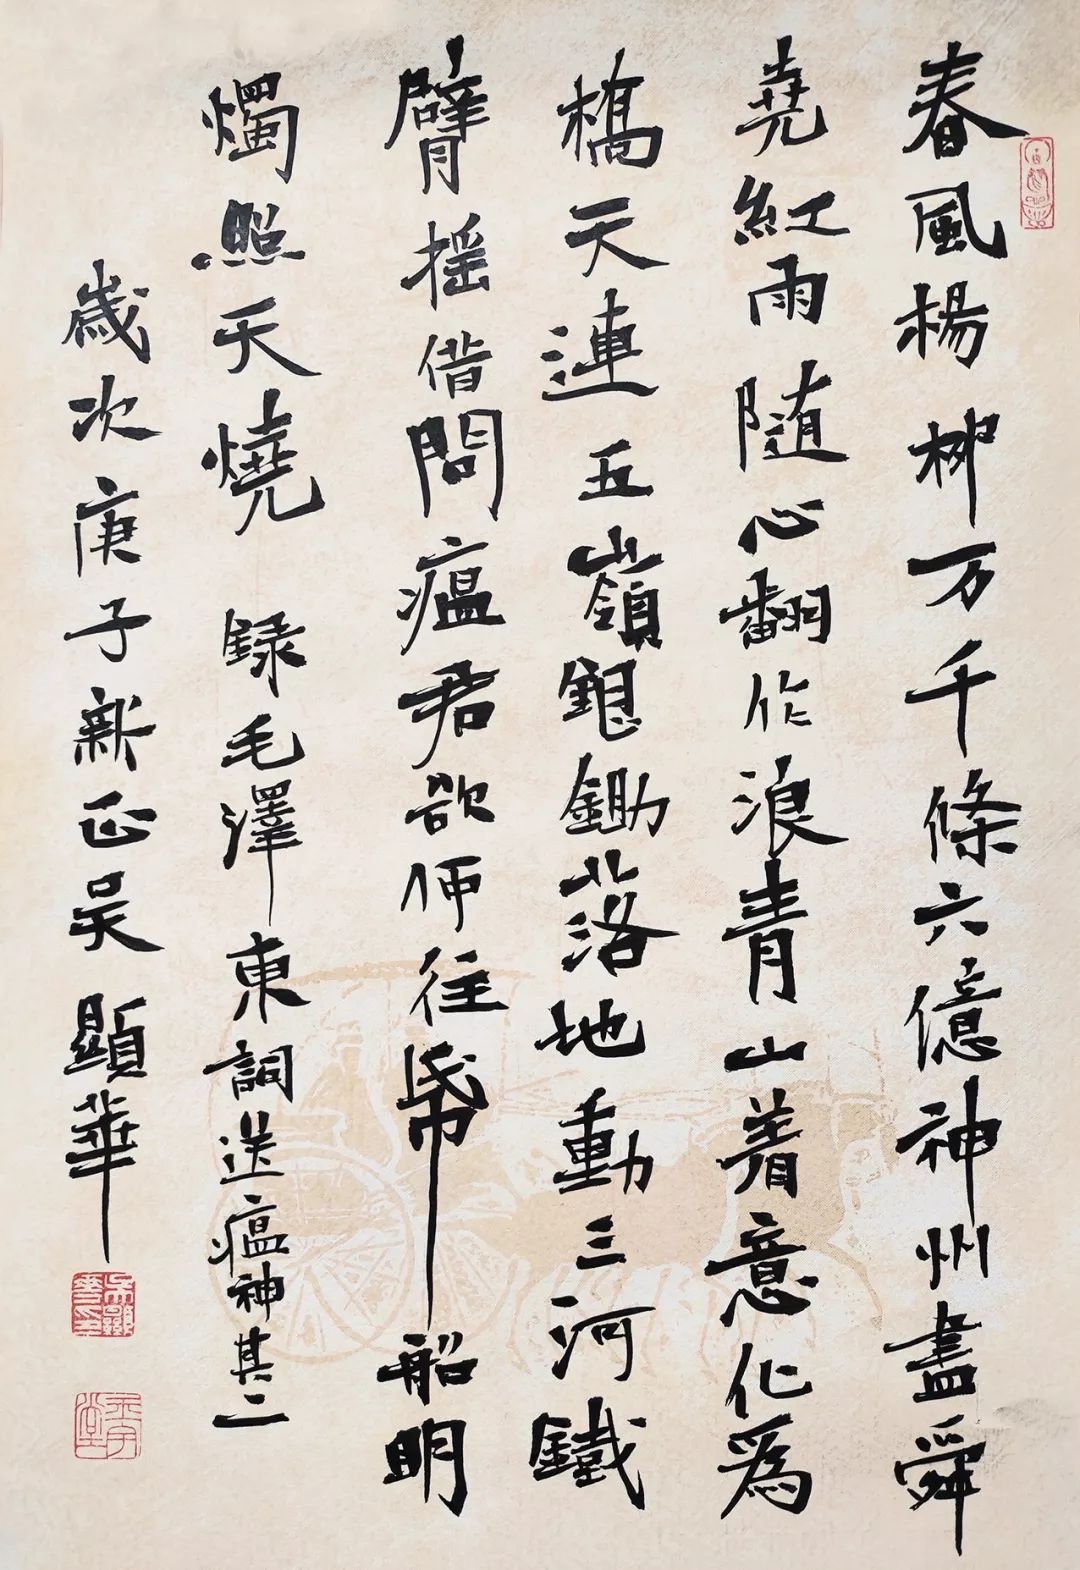 春風楊柳万千條六億神州盡舜
堯紅雨随心翻作浪青山着意化爲
橋天連五嶺銀鋤落地動三河鐵
臂摇借問瘟君欲何往帋船明
燭照天燒 録毛澤東詞送瘟神其二
歲次庚子新正吴顯華
吴顯華印